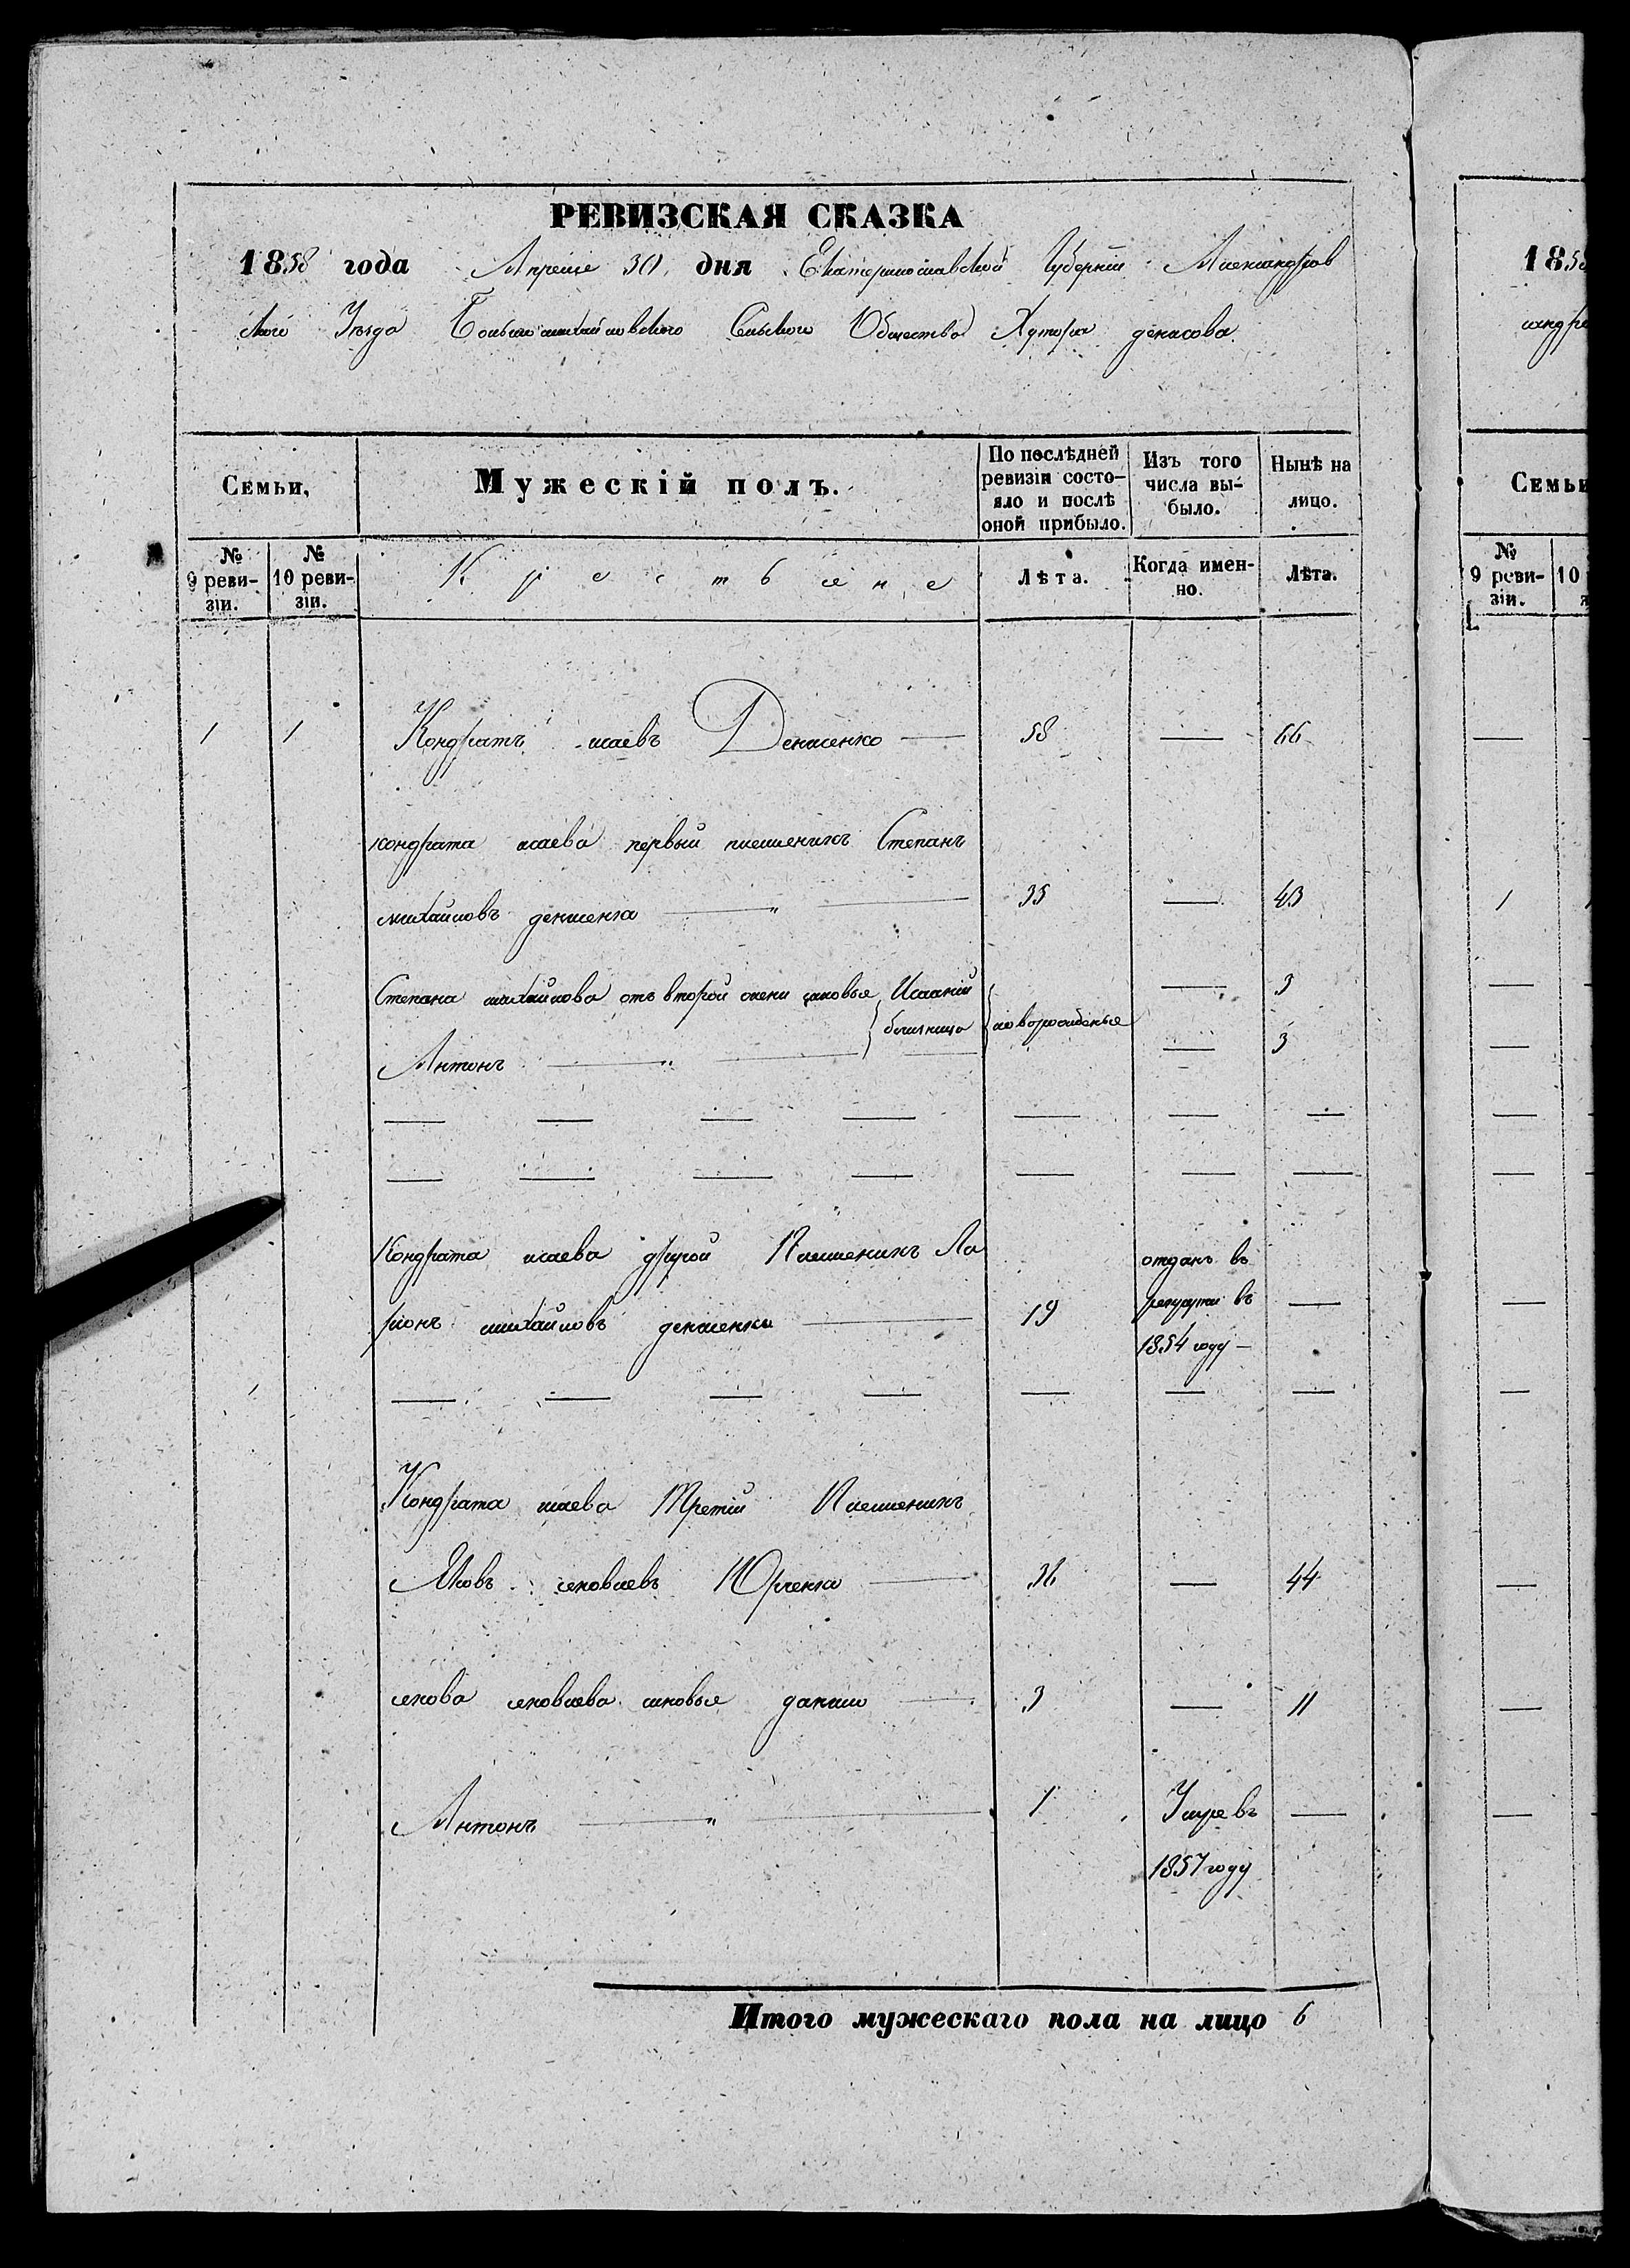 РЕВИЗСКАЯ СКАЗКА
1858 года Апреля 30 дня Екатеринославской Губернии Александров
ского Уезда Большемихайловского Сельского Общества Хутора денисова
Семьи, Мужескій полъ. По послѣдней ревизіи состо- яло и послѣ оной прибыло. Изъ того числа вы- было. Нынѣ на лицо.
№ 9 реви- зіи. № 10 реви- зіи. Крестьяне Лѣта. Когда имен- но. Лѣта.
1 1 Кондратъ исаевъ Денисенко — 58 — 66
кондрата исаева первый племеникъ Степанъ
михайловъ денисенка — " — 35 — 43
Степана михайлова отъ второй жени синовья Исакий — 3
близнецы новорожденые
Антонъ — " — — 3
— — — — — — —
— — — — — — —
Кондрата исаева другой Племеникъ Ла
рионъ михайловъ денисенко — 19 отданъ въ рекруты въ 1854 году — —
— — — — — — —
Кондрата исаева Третій Племеникъ
Яковъ яковлевъ Юрченка — 36 — 44
якова яковлева синовья данило — 3 — 11
Антонъ — " — 1 Умре въ 1857 году —
Итого мужескаго пола на лицо 6
1858
сандро
Семьи
№ 9 реви- зіи. 10
1